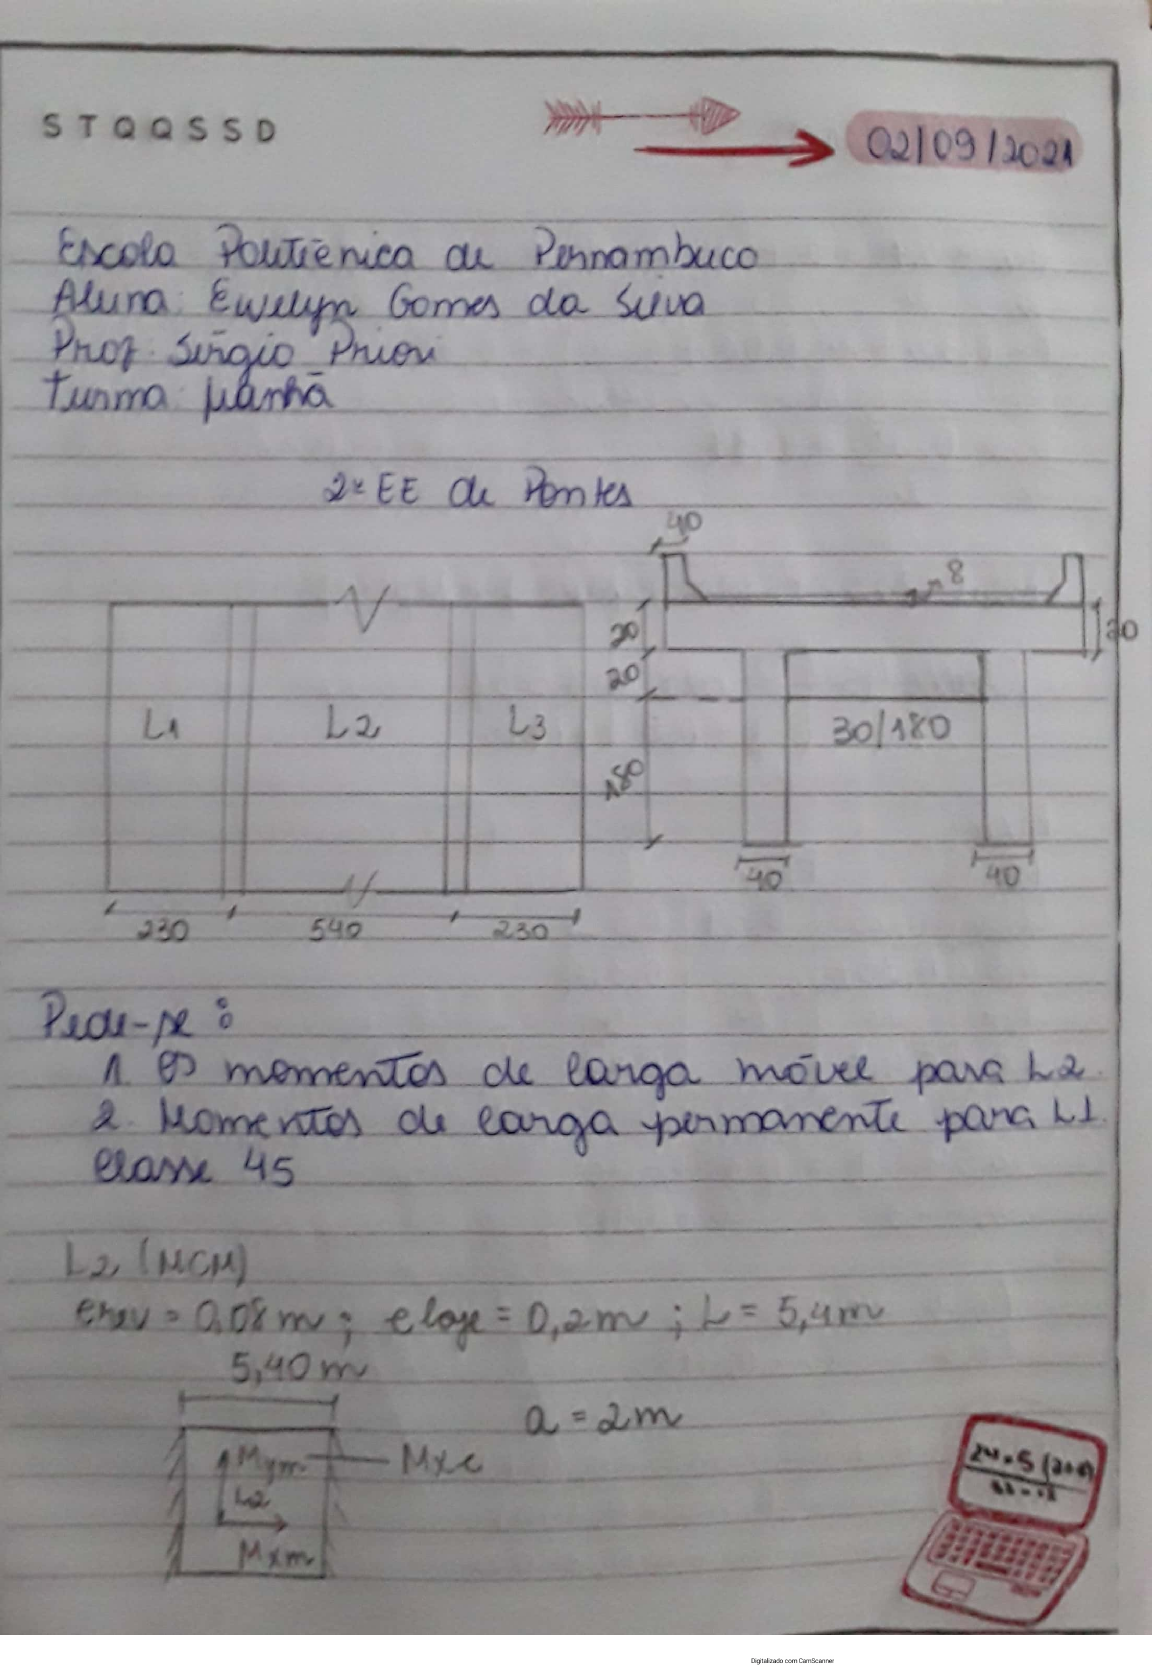 S T Q Q S S D
02/09/2021
Escola Politécnica de Pernambuco
Aluna: Ewelyn Gomes da Silva
Prof. Sérgio Priori
Turma: Manhã
2º EE de Pontes
40
8
20
20
20
L1 L2 L3
30/180
180
40 40
230 540 230
Pede-se:
1. Os momentos de carga móvel para L2.
2. Momentos de carga permanente para L1.
Classe 45
L2 (MCM)
erev = 0,08m; e laje = 0,2m; L = 5,4m
5,40m
a = 2m
Mym Mxe
L2
Mxm
Digitalizado com CamScanner